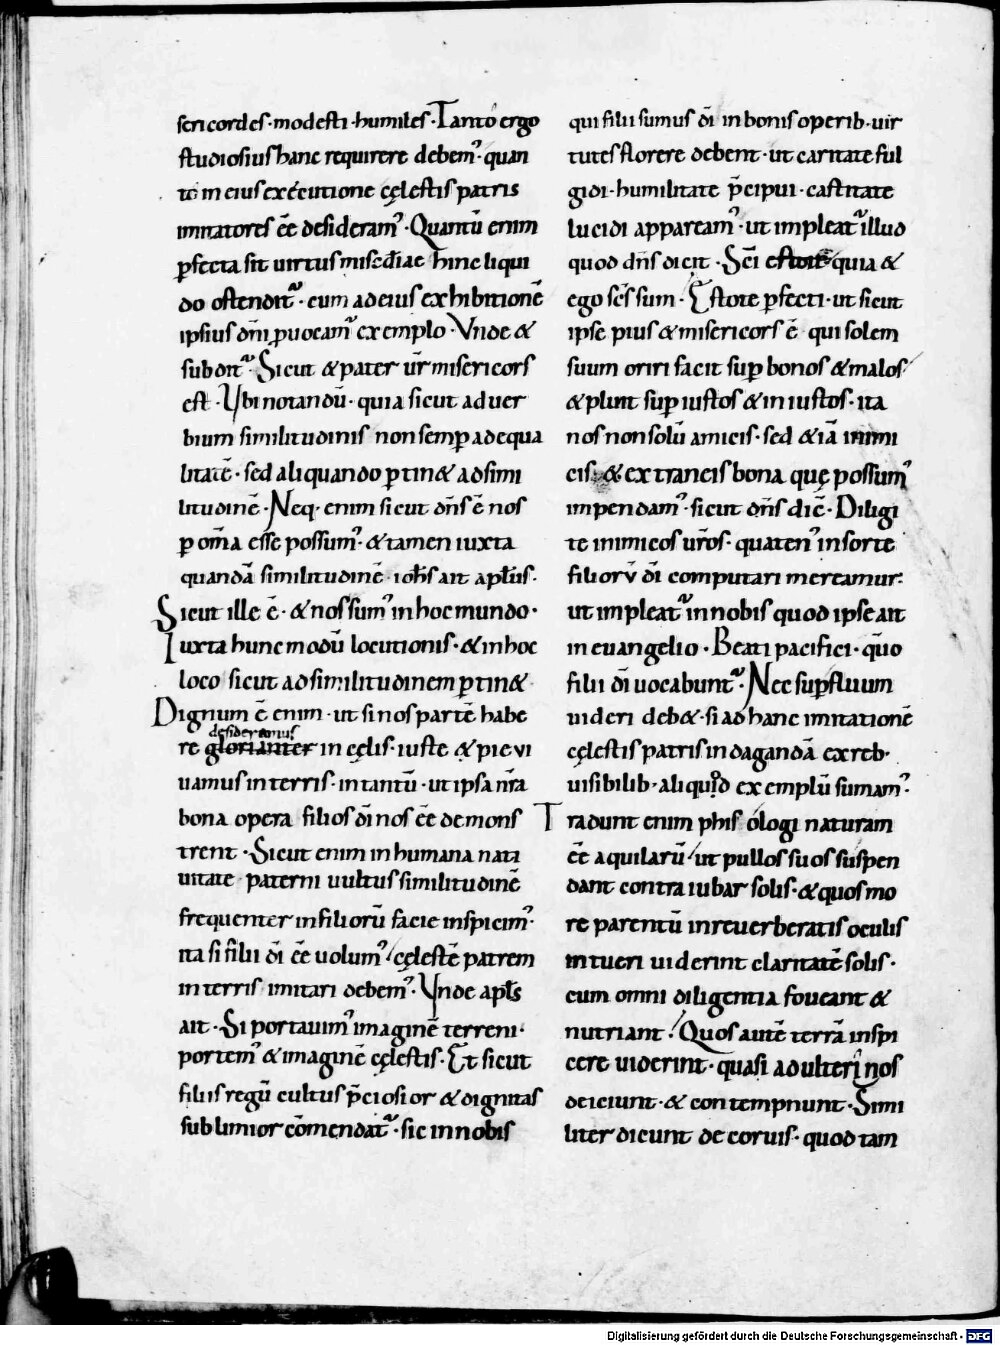 sericordes· modesti· humiles· Tanto ergo
studiosius hanc requirere debem᾽· quan
to in eius exécutione cęlestis patris
imitatores ēē desideram᾽· Quantū enim
ꝑfecta sit uirtus misc̄d̄iae hinc liqui
do ostendit᾽· cum ad eius exhibitionē
ipsius dn̄i ꝓuocam᾽ exemplo· Vnde &
subdit᾽· Sicut & pater ur̄ misericors
est· Vbi notandū· quia sicut aduer
bium similitudinis non semꝑ adequa
litatē· sed aliquando ꝑtin& ad simi
litudinē· Neq· enim sicut dn̄s ē nos
ꝑ om̄a esse possum᾽· & tamen iuxta
quandā similitudinē· ioh̄s ait apl̄us·
Sicut ille ē· & nos sum᾽ in hoc mundo·
Iuxta hunc modū locutionis· & in hoc
loco sicut ad similitudinem ꝑtin&·
Dignum ē enim· ut si nos partē habe
desideramus
re glorianter in cęlis· iuste & pie vi
uamus in terris· in tantū· ut ipsa nr̄a
bona opera filios dī nos ēē demons
trent· Sicut enim in humana nati
uitate paterni uultus similitudinē
frequenter in filiorū facie inspicim᾽·
ita si filii dī ēē uolum᾽ cęlestē patrem
in terris imitari debem᾽· Vnde apl̄s
ait· Si portauim᾽ imaginē terreni·
portem᾽ & imaginē cęlestis· Et sicut
filiis regū cultus p̄ciosior & dignitas
sublimior cōmendat᾽· sic in nobis
qui filii sumus dī in bonis operib· uir
tutes florere debent· ut caritate ful
gidi· humilitate p̄cipui· castitate
lucidi appaream᾽· ut impleat᾽ illud
quod dn̄s dicit· Sc̄i estote quia &
ego sc̄s sum· Estote ꝑfecti· ut sicut
ipse pius & misericors ē· qui solem
suum oriri facit suꝑ bonos & malos·
& pluit suꝑ iustos & iniustos· ita
nos non solū amicis· sed &iā inimi
cis· & extraneis bona quę possum᾽
impendam᾽· sicut dn̄s dic̄· Diligi
te inimicos ur̄os· quaten᾽ in sorte
filiorv̄ dī computari mereamur·
ut impleat᾽ in nobis quod ipse ait
in euangelio· Beati pacifici· qūo
filii dī uocabunt᾽· Nec suꝑfluum
uideri deb&· si ad hanc imitationē
cęlestis patris indagandā ex reb·
uisibilib· aliquod exemplū sumam᾽·
Tradunt enim phisologi naturam
ēē aquilarū ut pullos suos suspen
dant contra iubar solis· & quos mo
re parentū inreuerberatis oculis
intueri uiderint claritatē solis·
cum omni diligentia foueant &
nutriant· Quos autē terrā inspi
cere uiderint· quasi adulterinos
deiciunt· & contempnunt· Simi
liter dicunt de coruis· quod tam
Digitalisierung gefördert durch die Deutsche Forschungsgemeinschaft - DFG